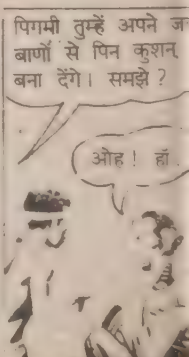 पिगमी तुम्हें अपने
बाणों से पिन कुशन
बना देंगे। समझे ?
ओह ! हाँ